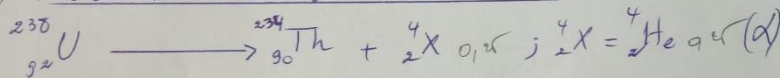 ²³⁸₉₂U ⟶ ²³⁴₉₀Th + ⁴₂X ; ⁴₂X = ⁴₂He (α)